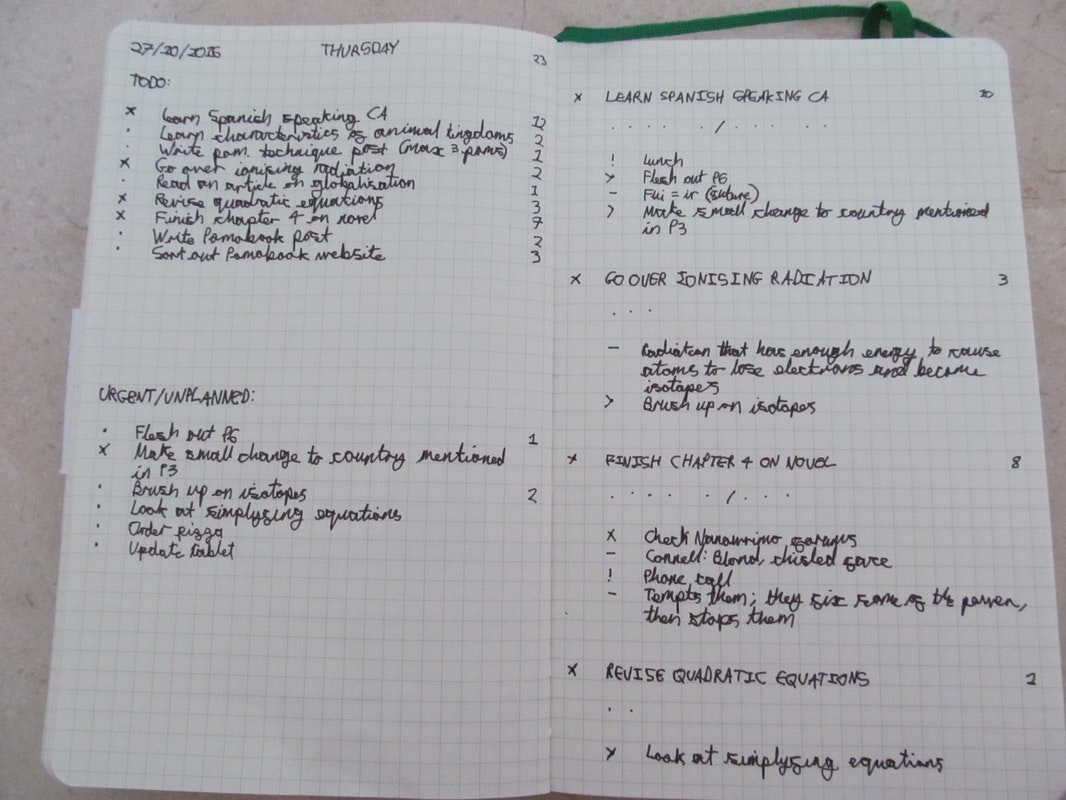 27/10/2016 THURSDAY 23
TODO:
x Learn Spanish speaking CA 12
· Learn characteristics of animal kingdoms 2
· Write pom. technique post (max 3 poms) 1
x Go over ionising radiation 2
· Read an article on globalisation 1
x Revise quadratic equations 3
x Finish chapter 4 on novel 7
· Write Pomobook post 2
· Sort out Pomobook website 3
URGENT/UNPLANNED:
· Flesh out P6 1
x Make small change to country mentioned
in P3
· Brush up on isotopes 2
· Look at simplysing equations
· Order pizza
· Update tablet
x LEARN SPANISH SPEAKING CA 10
. . . . . / . . . . .
! Lunch
> Flesh out P6
- Fui = ir
> Make small change to country mentioned
in P3
x GO OVER IONISING RADIATION 3
. . .
- Radiation that has enough energy to cause
atoms to lose electrons and become
isotapes
> Brush up on isotapes
x FINISH CHAPTER 4 ON NOVEL 8
. . . . . / . . .
x Check Nanowrimo
- Connell: Blond, chisled
! Phone call
- Tempts them; they some of the
then stops them
x REVISE QUADRATIC EQUATIONS 2
. .
> Look at simplysing equations